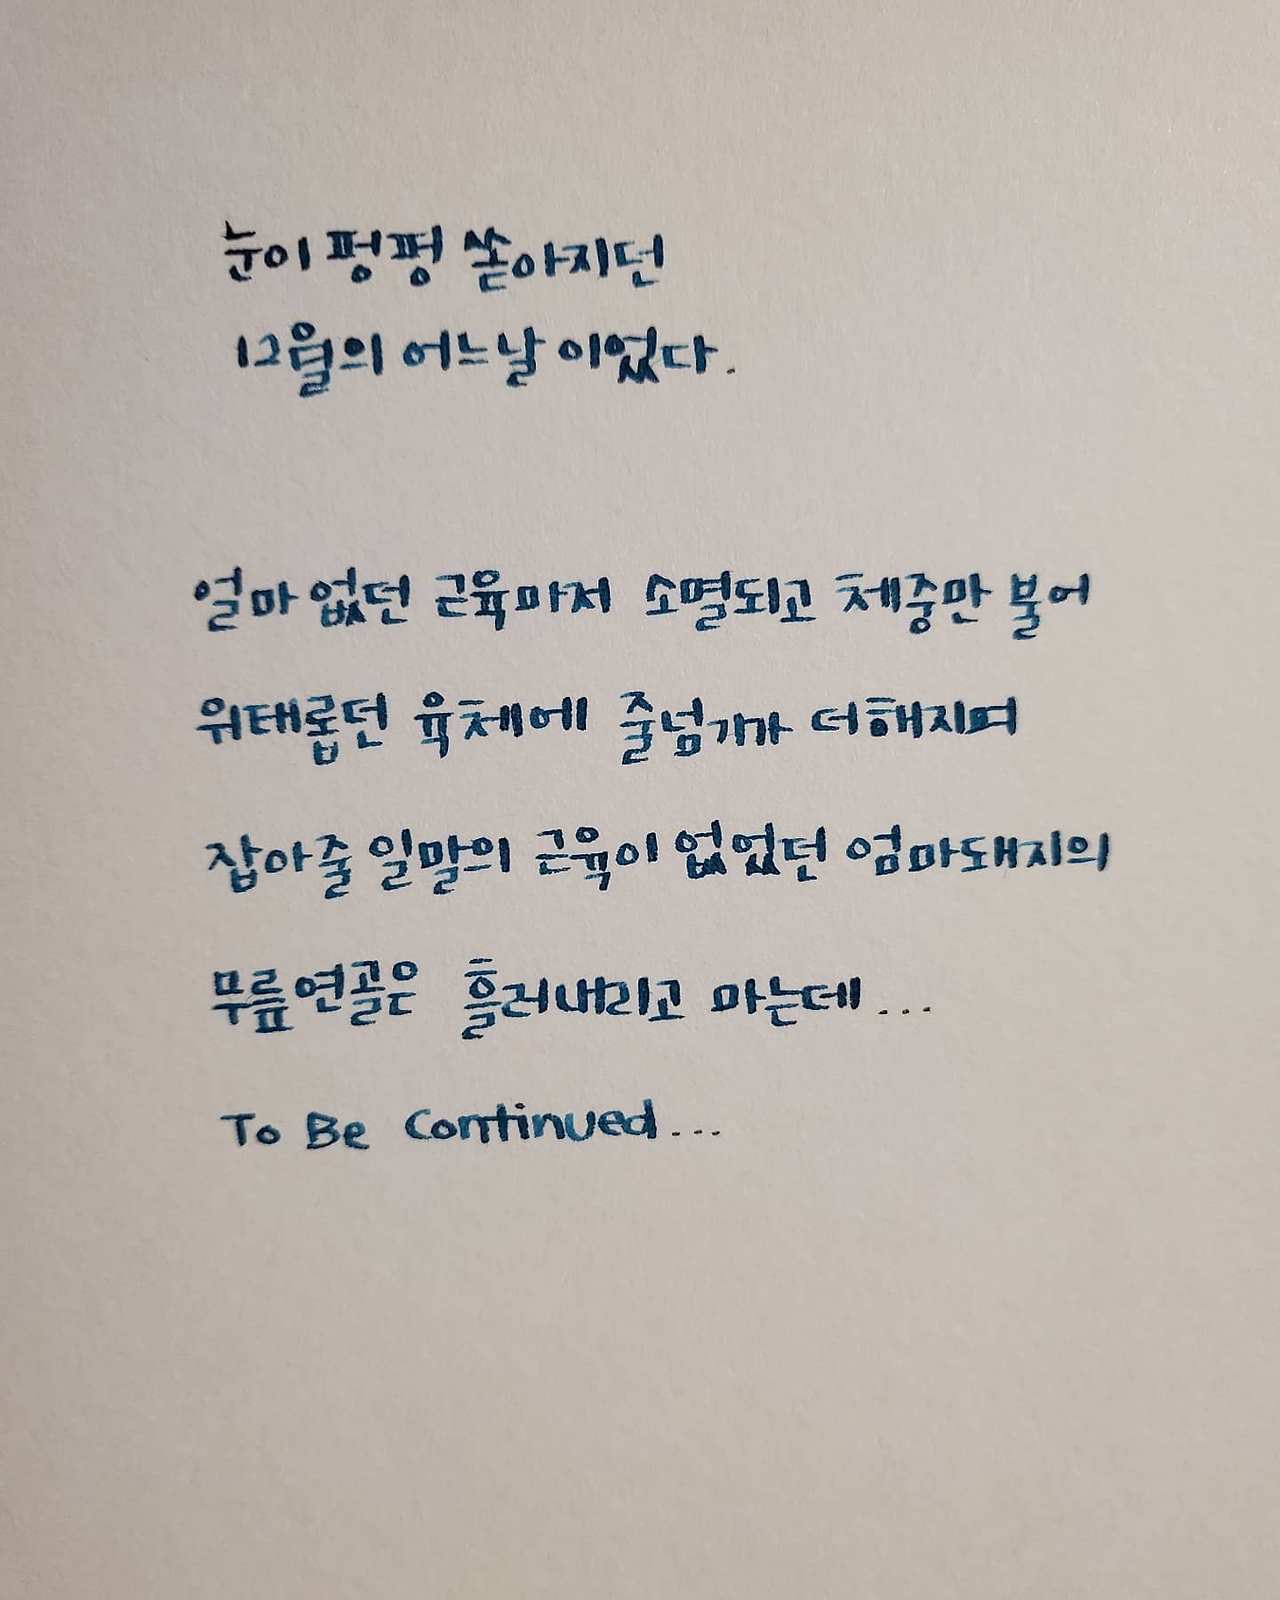 눈이 펑펑 쏟아지던
12월의 어느날이었다.
얼마 없던 근육마저 소멸되고 체중만 불어
위태롭던 육체에 줄넘기가 더해지며
잡아줄 일말의 근육이 없었던 엄마돼지의
무릎연골은 흘러내리고 마는데...
To Be Continued...